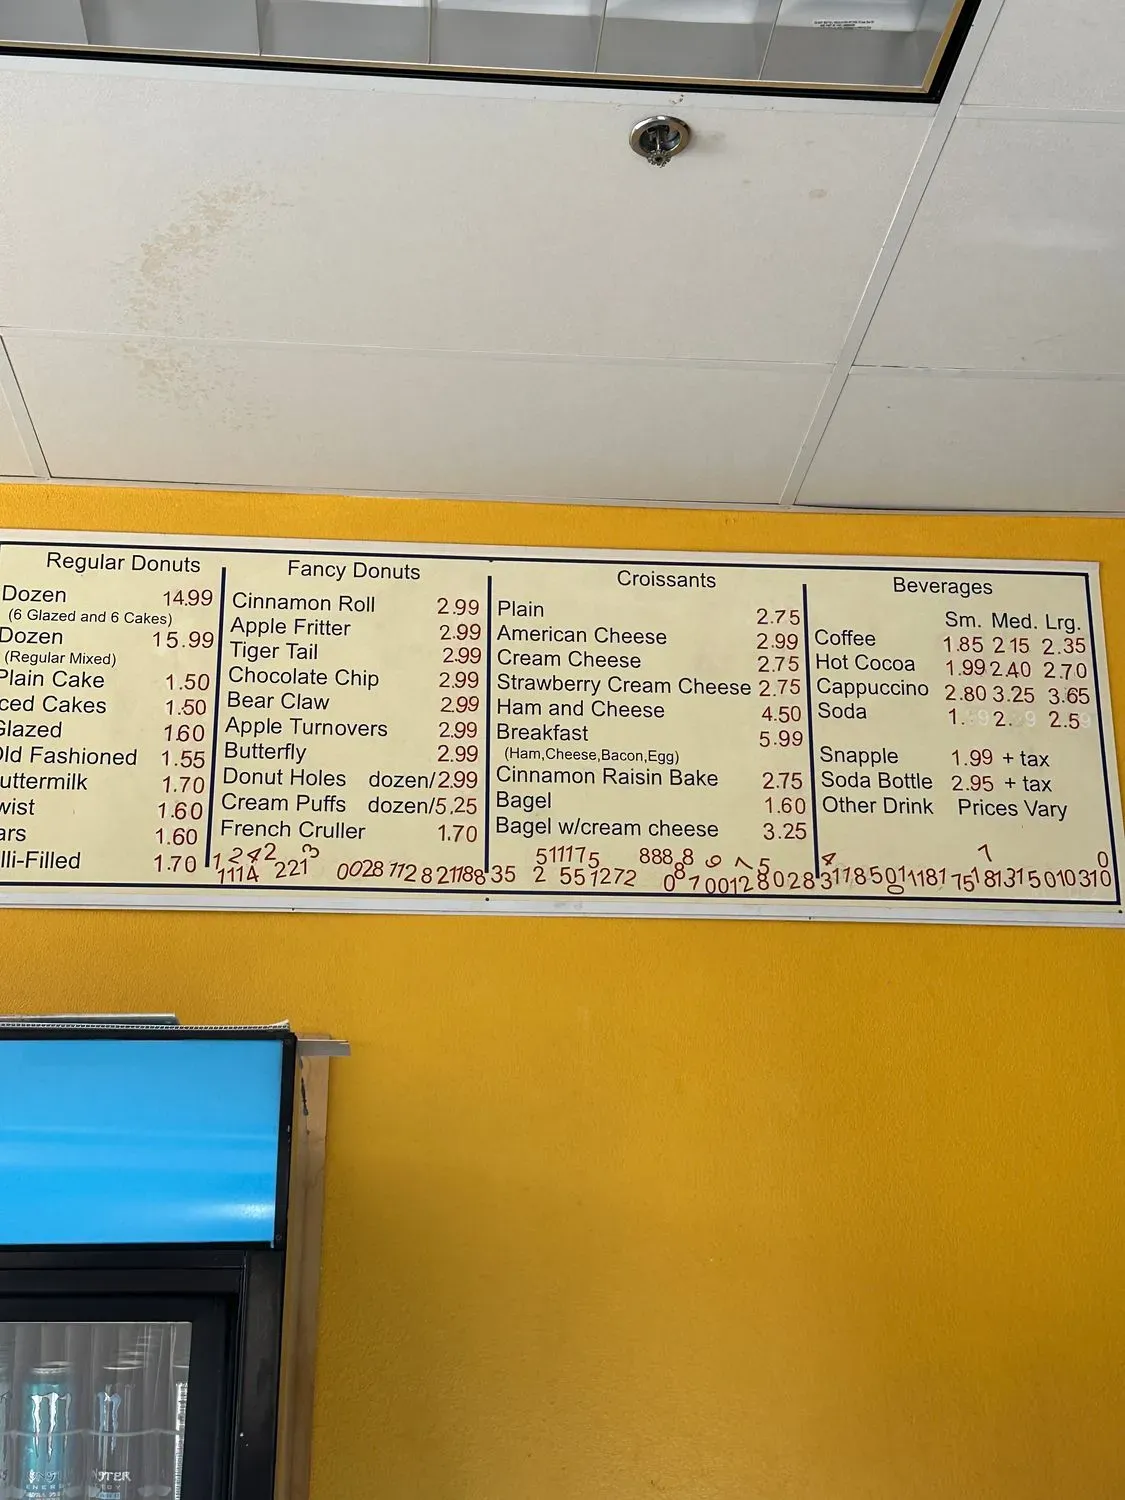 Regular Donuts
Dozen 14.99
(6 Glazed and 6 Cakes)
Dozen 15.99
(Regular Mixed)
Plain Cake 1.50
ced Cakes 1.50
Glazed 160
Old Fashioned 1.55
uttermilk 1.70
wist 1.60
ars 1.60
lli-Filled 1.70
Fancy Donuts
Cinnamon Roll 2.99
Apple Fritter 2.99
Tiger Tail 2.99
Chocolate Chip 2.99
Bear Claw 2.99
Apple Turnovers 2.99
Butterfly 2.99
Donut Holes dozen/2.99
Cream Puffs dozen/5.25
French Cruller 1.70
Croissants
Plain 2.75
American Cheese 2.99
Cream Cheese 2.75
Strawberry Cream Cheese 2.75
Ham and Cheese 4.50
Breakfast 5.99
(Ham,Cheese,Bacon,Egg)
Cinnamon Raisin Bake 2.75
Bagel 1.60
Bagel w/cream cheese 3.25
Beverages
Sm. Med. Lrg.
Coffee 1.85 2 15 2.35
Hot Cocoa 1.99 2.40 2.70
Cappuccino 2.80 3.25 3.65
Soda 1.99 2.29 2.59
Snapple 1.99 + tax
Soda Bottle 2.95 + tax
Other Drink Prices Vary